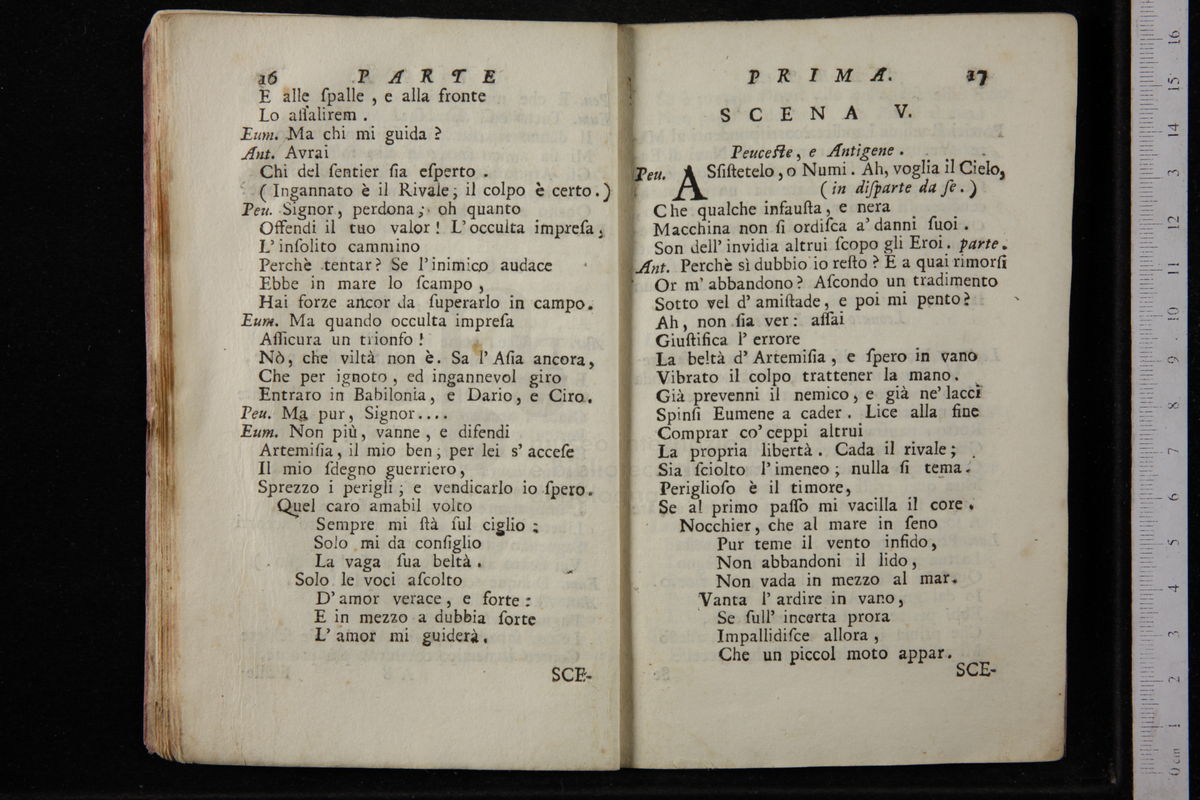 16 PARTE
E alle ſpalle, e alla fronte
Lo aſſalirem.
Eum. Ma chi mi guida?
Ant. Avrai
Chi del ſentier ſia eſperto.
(Ingannato è il Rivale; il colpo è certo.)
Peu. Signor, perdona; oh quanto
Offendi il tuo valor! L'occulta impreſa,
L'inſolito cammino
Perchè tentar? Se l'inimico audace
Ebbe in mare lo ſcampo,
Hai forze ancor da ſuperarlo in campo.
Eum. Ma quando occulta impreſa
Aſſicura un trionfo!
Nò, che viltà non è. Sa l'Aſia ancora,
Che per ignoto, ed ingannevol giro
Entraro in Babilonia, e Dario, e Ciro.
Peu. Ma pur, Signor....
Eum. Non più, vanne, e difendi
Artemiſia, il mio ben; per lei s'acceſe
Il mio ſdegno guerriero,
Sprezzo i perigli; e vendicarlo io ſpero.
Quel caro amabil volto
Sempre mi ſtà ſul ciglio;
Solo mi da conſiglio
La vaga ſua beltà.
Solo le voci aſcolto
D'amor verace, e forte:
E in mezzo a dubbia ſorte
L'amor mi guiderà.
SCE-
PRIMA. 17
SCENA V.
Peuceſte, e Antigene.
Peu. ASſiſtetelo, o Numi. Ah, voglia il Cielo,
(in diſparte da ſe.)
Che qualche infauſta, e nera
Macchina non ſi ordiſca a' danni ſuoi.
Son dell'invidia altrui ſcopo gli Eroi. parte.
Ant. Perchè sì dubbio io reſto? E a quai rimorſi
Or m'abbandono? Aſcondo un tradimento
Sotto vel d'amiſtade, e poi mi pento?
Ah, non ſia ver: aſſai
Giuſtifica l'errore
La beltà d'Artemiſia, e ſpero in vano
Vibrato il colpo trattener la mano.
Già prevenni il nemico, e già ne' lacci
Spinſi Eumene a cader. Lice alla fine
Comprar co' ceppi altrui
La propria libertà. Cada il rivale;
Sia ſciolto l'imeneo; nulla ſi tema.
Periglioſo è il timore,
Se al primo paſſo mi vacilla il core.
Nocchier, che al mare in ſeno
Pur teme il vento infido,
Non abbandoni il lido,
Non vada in mezzo al mar.
Vanta l'ardire in vano,
Se ſull'incerta prora
Impallidiſce allora,
Che un piccol moto appar.
SCE-